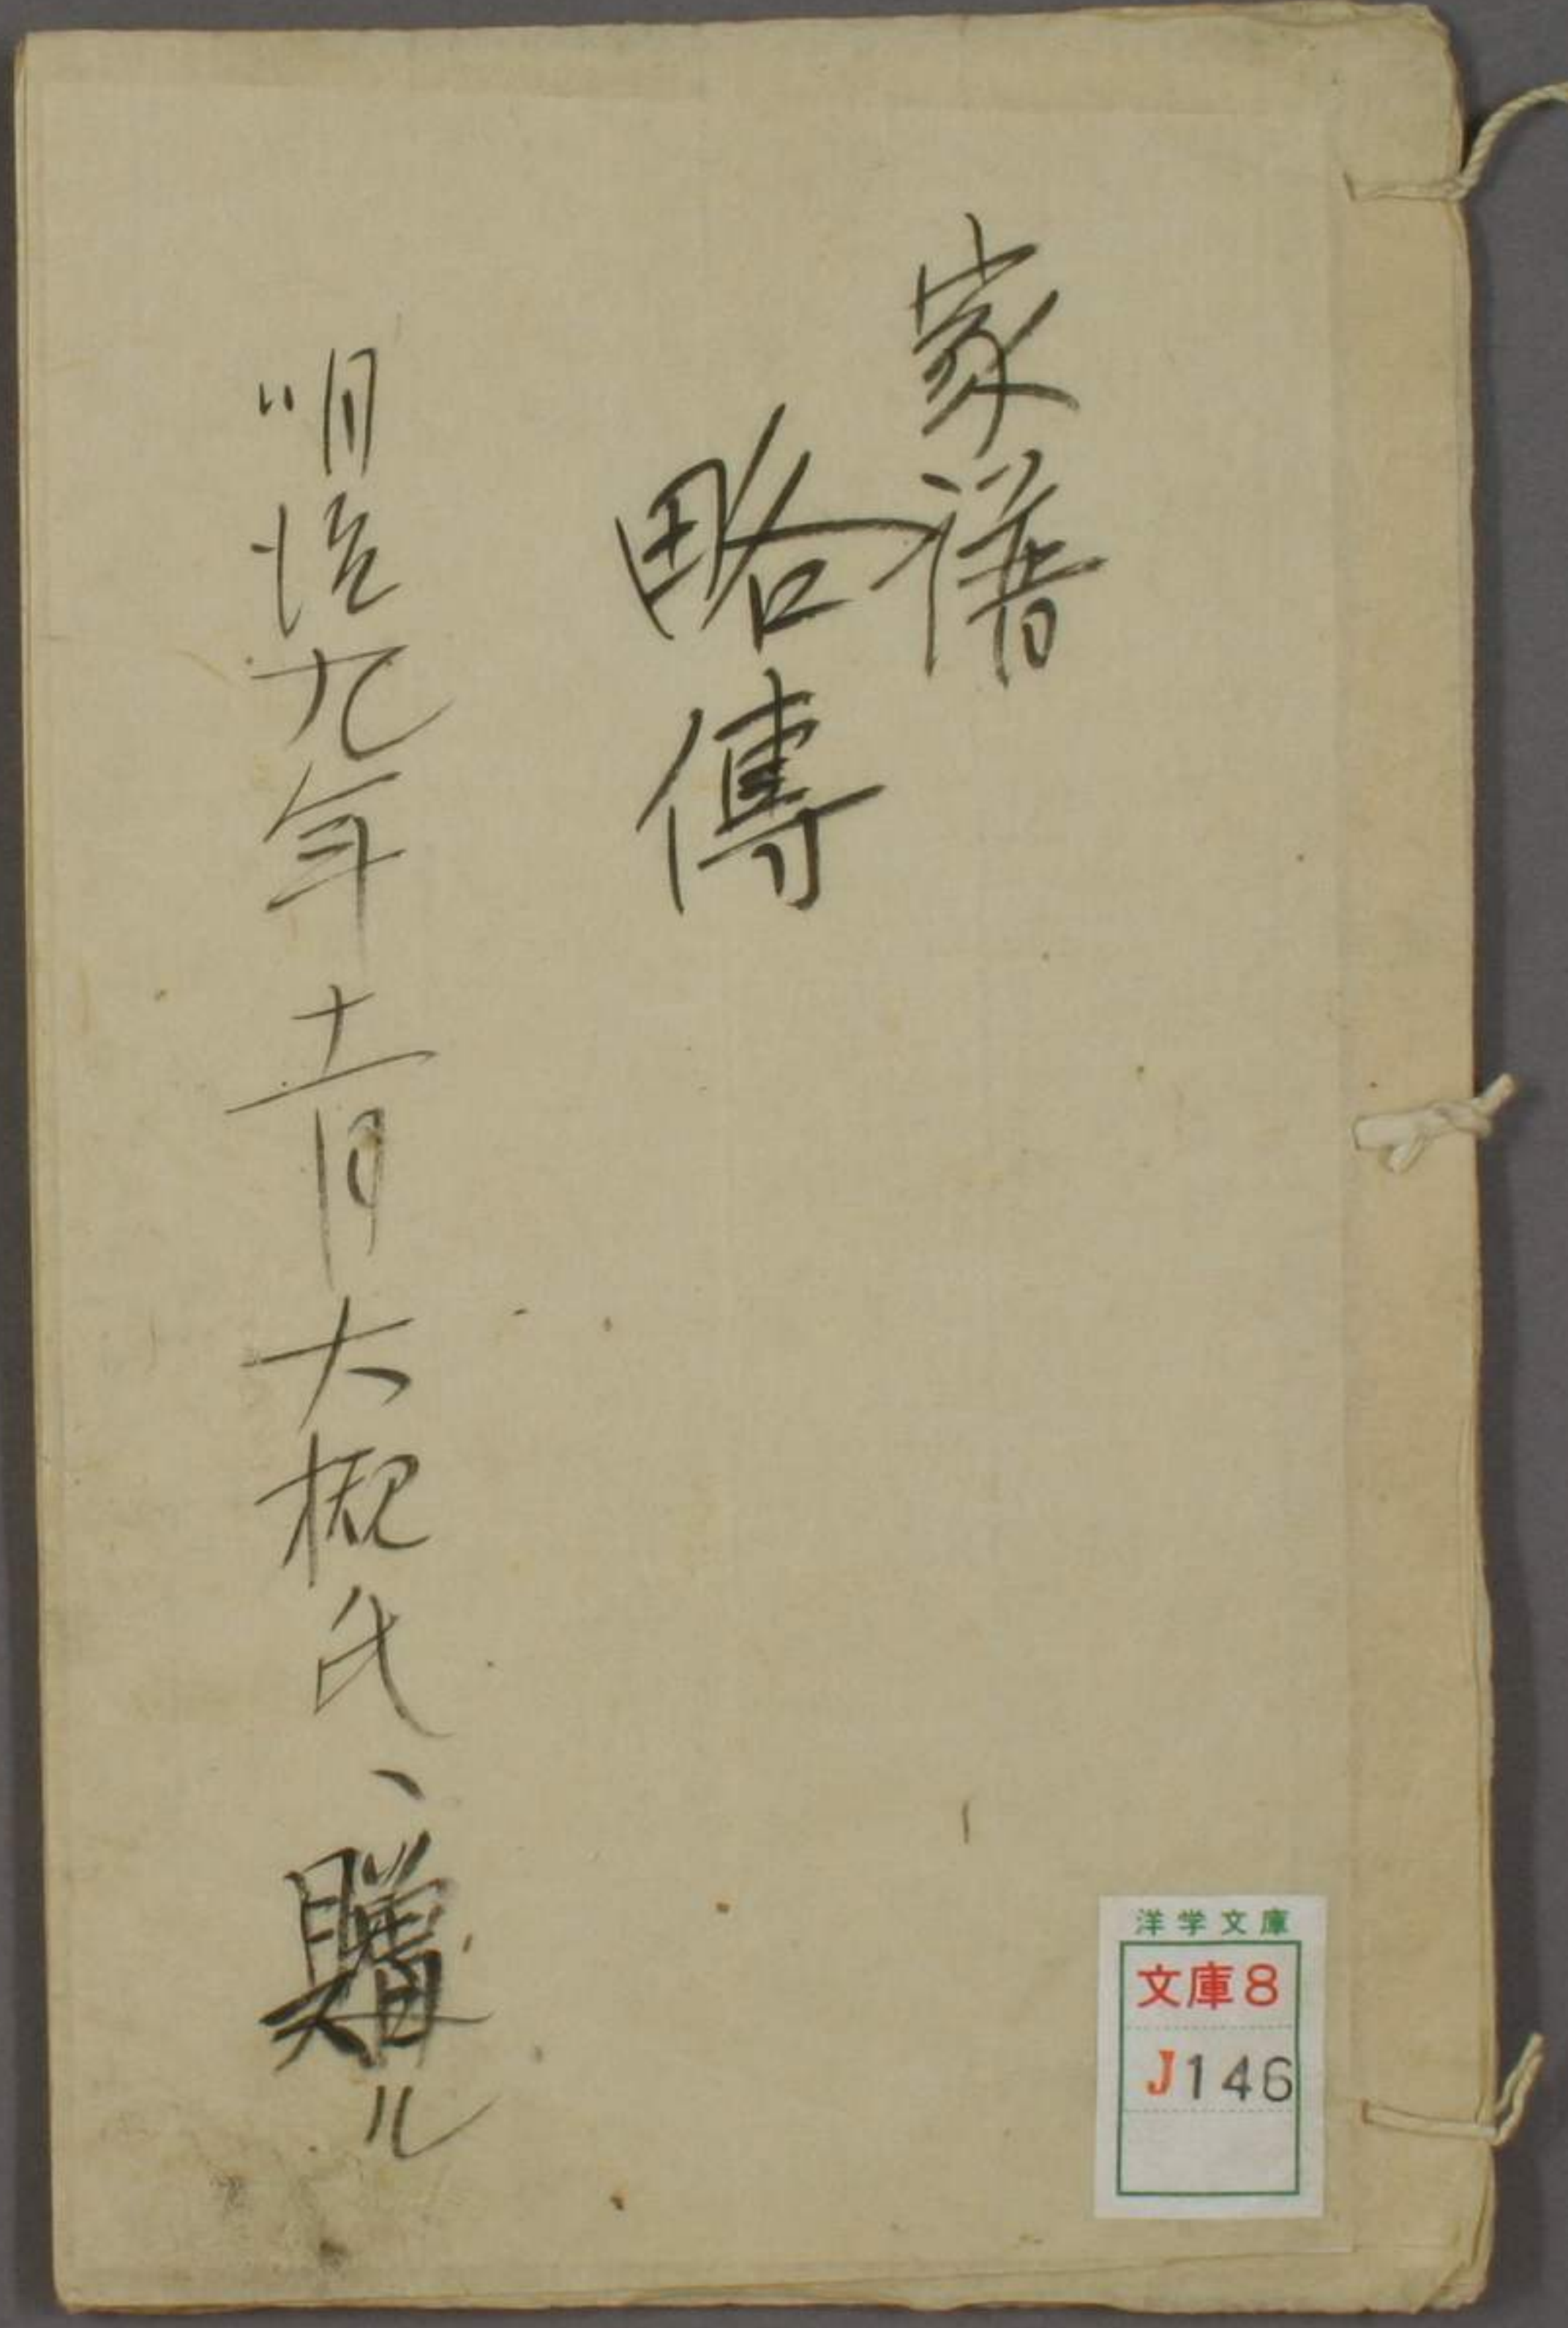 家譜
略傳
明治九年十一月大槻氏ヽ贈ル
洋学文庫
文庫8
J146